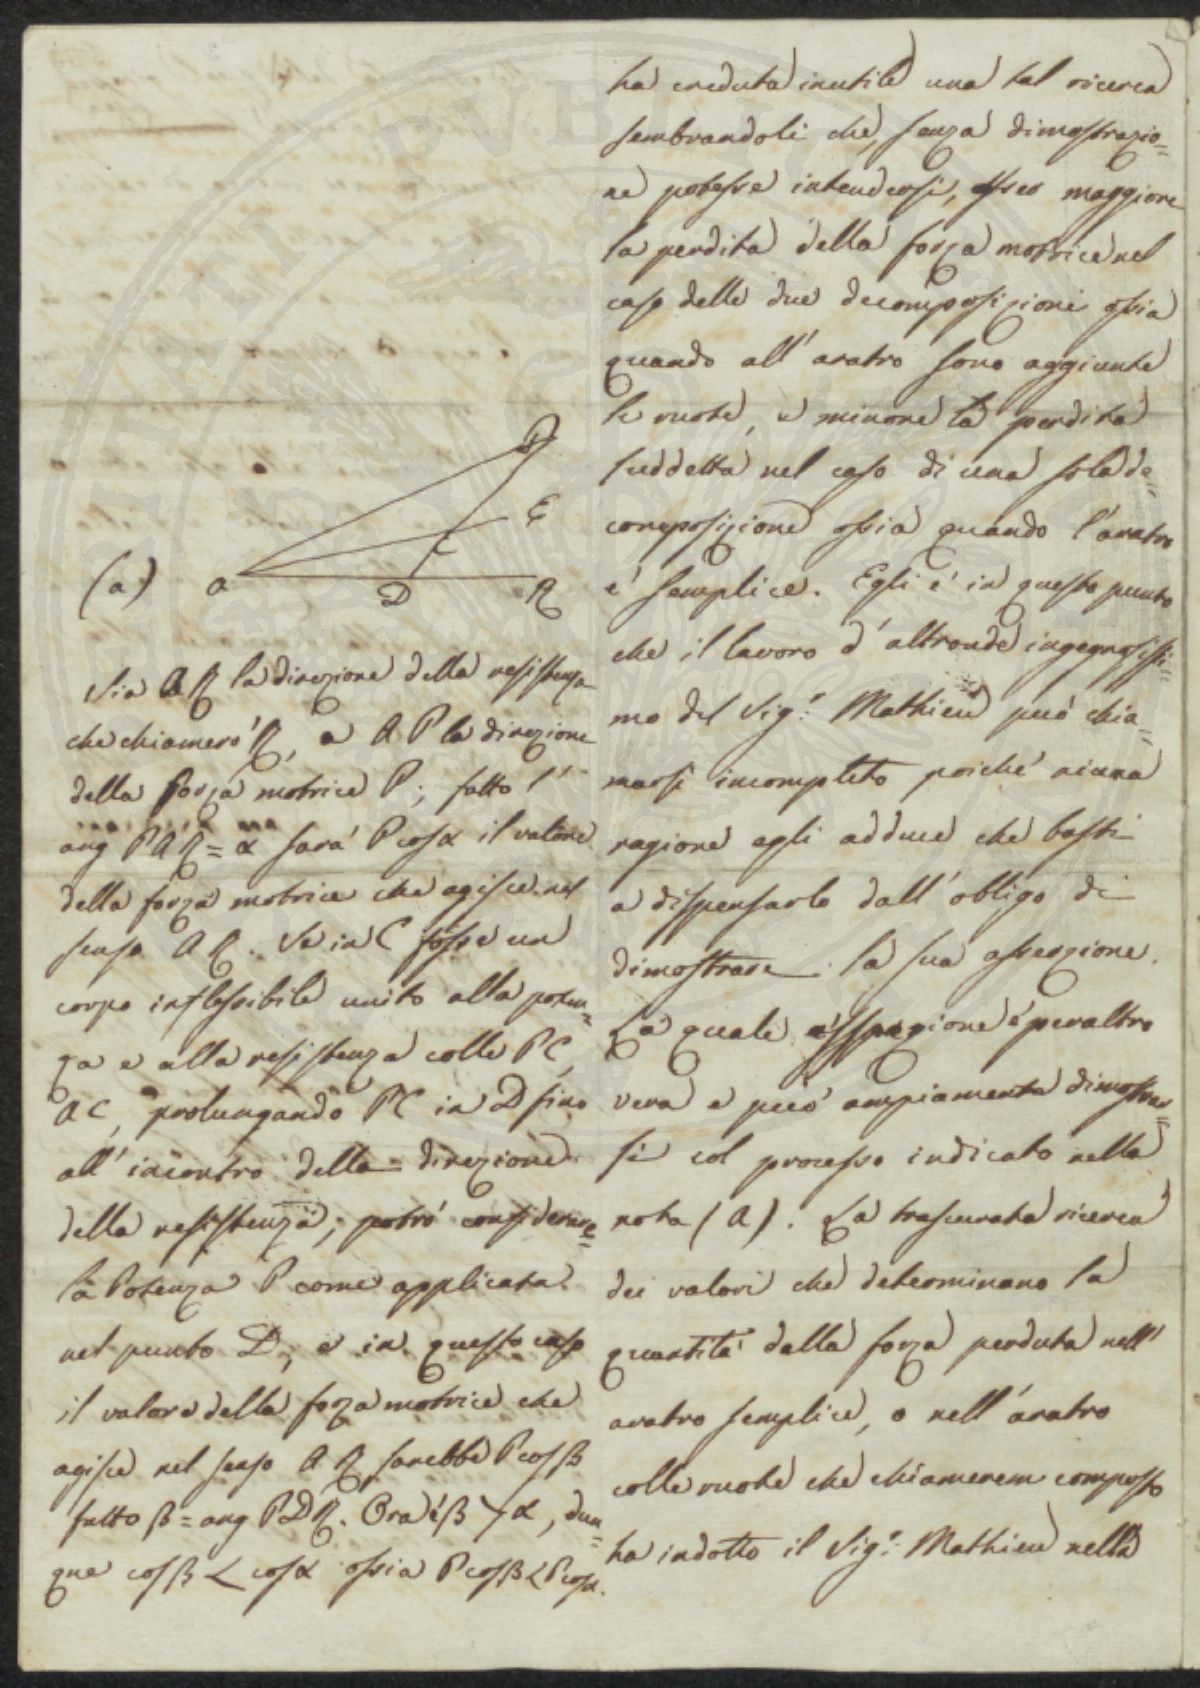 (a) A D R C E P
Sia AR la direzione della resistenza
che chiamerò R, e AP la direzione
della forza motrice P; fatto l'
ang PAR = α sarà P cosα il valore
della forza motrice che agisce nel
senso AR. Se in C fosse un
corpo inflessibile unito alla poten=
za e alla resistenza colle PC,
AC, prolungando PC in D fino
all'incontro della direzione
della resistenza, potrò considerare
la Potenza P come applicata
nel punto D, e in questo caso
il valore della forza motrice che
agisce nel senso AR sarebbe P cosβ
fatto β = ang PDR. Ora è β > α, dun=
que cosβ < cosα ossia P cosβ < P cosα.
ha creduta inutile una tal ricerca
sembrandoli che, senza dimostrazio=
ne potesse intendersi, esser maggiore
la perdita della forza motrice nel
caso delle due decomposizioni ossia
quando all'aratro sono aggiunte
le ruote, e minore la perdita
suddetta nel caso di una sola de=
composizione ossia quando l'aratro
è semplice. Egli è in questo punto
che il lavoro d'altronde ingegnosissi=
mo del Sig.r Mathieu può chia=
marsi incompleto poiché niuna
ragione egli adduce che basti
a dispensarlo dall'obligo di
dimostrare la sua asserzione.
La quale asserzione è peraltro
vera e può ampiamente dimostrar=
si col processo indicato nella
nota (A). La trascurata ricerca
dei valori che determinano la
quantità della forza perduta nell'
aratro semplice, o nell'aratro
colle ruote che chiamerem composto
ha indotto il Sig.r Mathieu nella